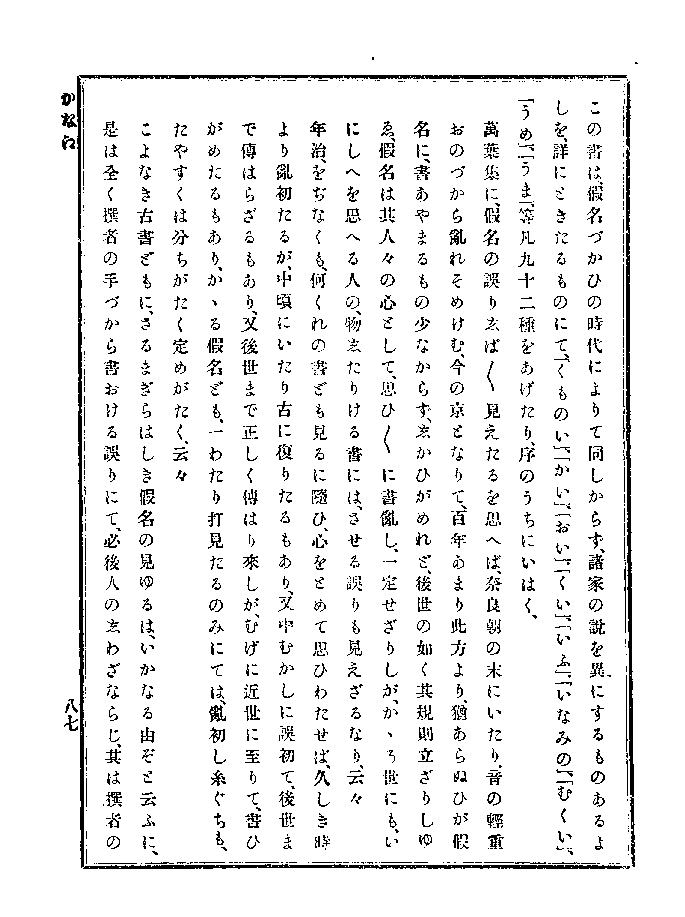 この書は、假名づかひの時代によりて同しからず、諸家の說を異にするものあるよ
しを、詳にときたるものにて、「くものい」「かい」「おい」「くい」「いふ」「いなみの」「むくい」、
「うめ」「うま」等凡九十二種をあげたり、序のうちにいはく、
萬葉集に、假名の誤りゑば〱見えたるを思へば、奈良朝の末にいたり、音の輕重
おのづから亂れそめけむ、今の京となりて、百年あまり此方より、猶あらぬひが假
名に、書あやまるもの少なからず、ゑかひがめれど、後世の如く其規則立ざりしゆ
ゑ、假名は其人々の心として、思ひ〱に書亂し、一定せざりしが、かゝる世にも、い
にしへを思へる人の、物ゑたりける書には、させる誤りも見えざるなり、云々
年治、をぢなくも、何くれの書ども見るに隨ひ、心をとめて思ひわたせば、久しき時
より亂初たるが、中頃にいたり古に復りたるもあり、又中むかしに誤初て、後世ま
で傳はらざるもあり、又後世まで正しく傳はり來しが、むげに近世に至りて、書ひ
がめたるもあり、かゝる假名ども、一わたり打見たるのみにては、亂初し糸ぐちも、
たやすくは分ちがたく定めがたく、云々
こよなき古書どもに、さるまぎらはしき假名の見ゆるは、いかなる由ぞと云ふに、
是は全く撰者の手づから書おける誤りにて、必後人のゑわざならじ、其は撰者の
かなは
八七